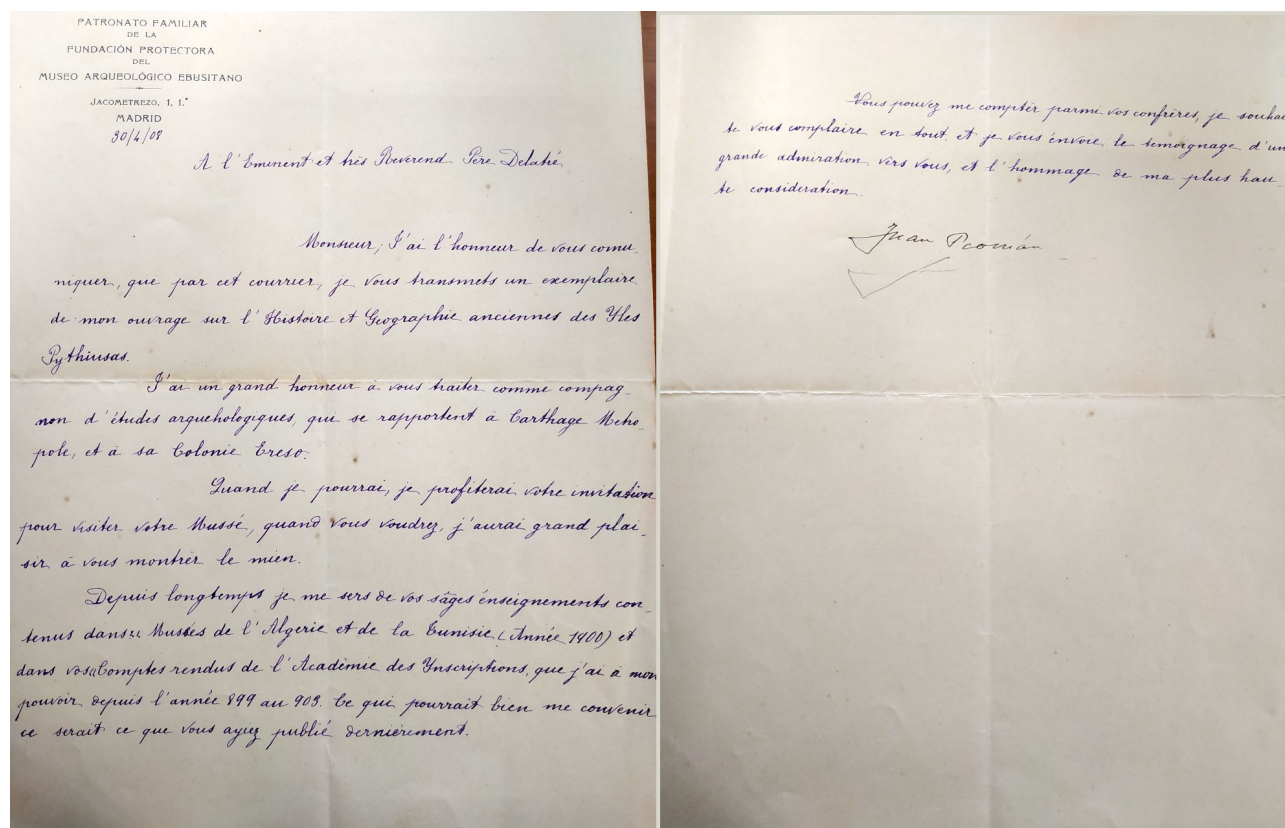 PATRONATO FAMILIAR
DE LA
FUNDACIÓN PROTECTORA
DEL
MUSEO ARQUEOLÓGICO EBUSITANO
JACOMETREZO, 1, 1.º
MADRID
30/4/07
A l'Eminent et très Reverend Père Delatré
Monsieur; J'ai l'honneur de vous comu-
niquer, que par cet courrier, je vous transmets un exemplaire
de mon ouvrage sur l'Histoire et Geographie anciennes des Yles
Pythiusas.
J'ai un grand honneur à vous traiter comme compag-
non d'études arquehologiques, qui se rapportent à Carthage Metro-
pole, et à sa Colonie Ereso.
Quand je pourrai, je profiterai votre invitation
pour visiter votre Mussé, quand vous voudrez, j'aurai grand plai-
sir à vous montrer le mien.
Depuis longtemps je me sers de vos sages énseignements con-
tenus dans "Mussées de l'Algerie et de la Tunisie (Année 1900) et
dans vos "Comptes rendus de l'Academie des Ynscriptions, que j'ai à mon
pouvoir depuis l'année 899 au 903. Ce qui pourrait bien me convenir
ce serait ce que vous ayiez publié dernièrement.
Vous pouvez me compter parmi vos confrères, je souhai
te vous complaire en tout et je vous envoie le temoignage d'un
grande admiration vers vous, et l'hommage de ma plus hau-
te consideration.
Juan Román